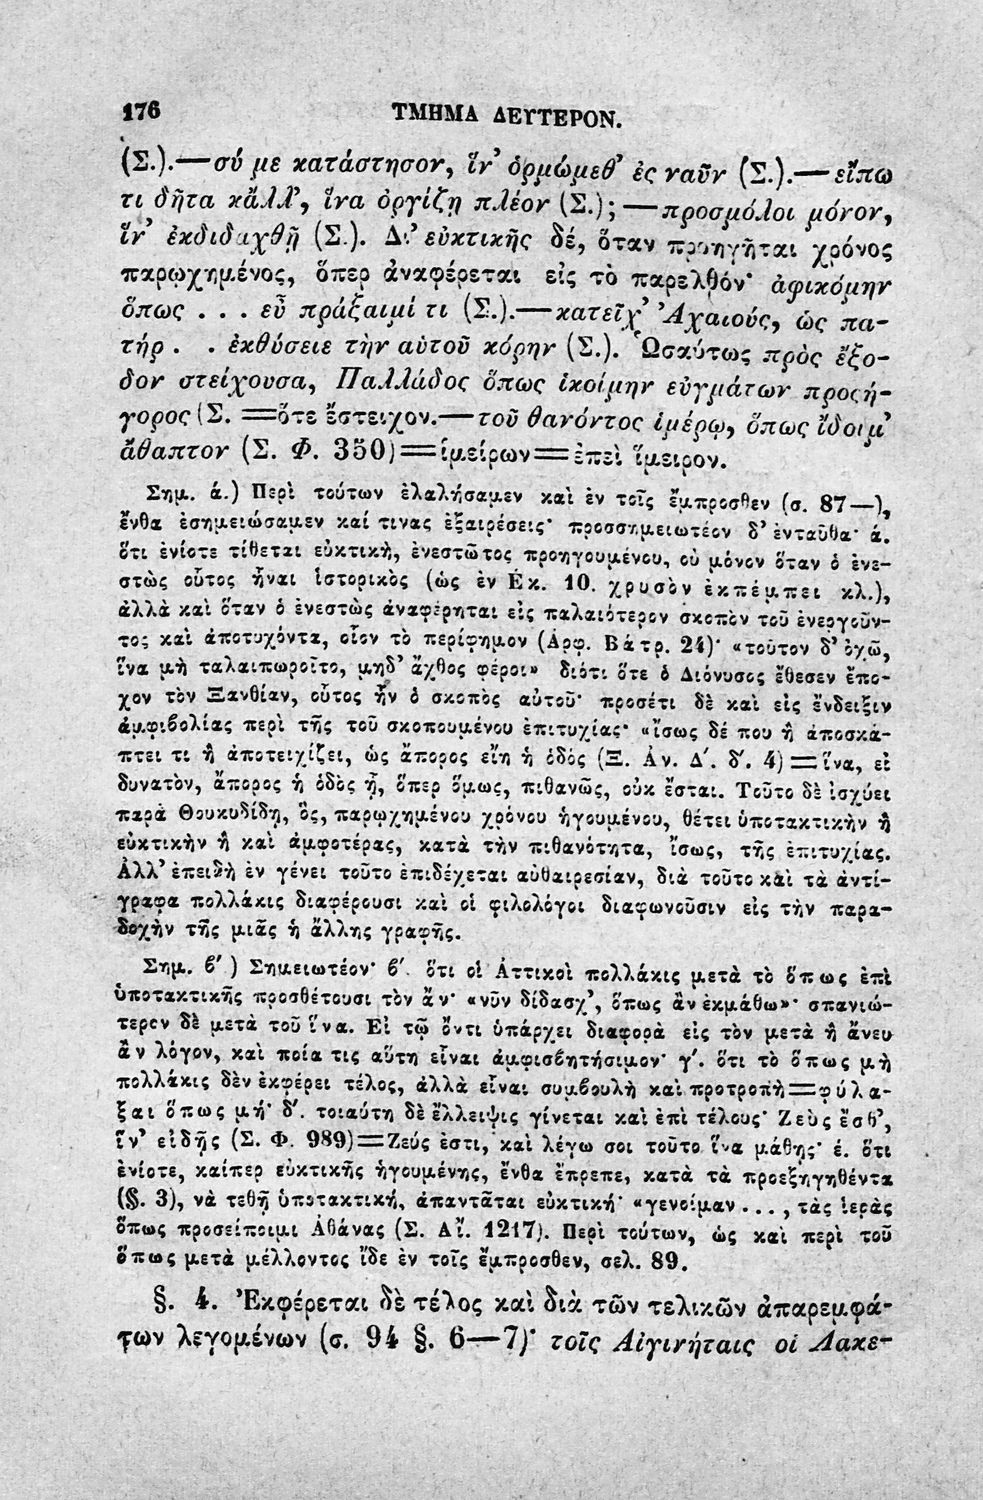 176 ΤΜΗΜΑ ΔΕΥΤΕΡΟΝ.
(Σ.).—σύ με κατάστησον, ἵν' ὁρμώμεθ' ἐς ναῦν (Σ.).—εἴπω
τι δῆτα κἄλλ', ἵνα ὀργίζῃ πλέον (Σ.);—προσμόλοι μόνον,
ἵν' ἐκδιδαχθῇ (Σ.). Δι' εὐκτικῆς δέ, ὅταν προηγῆται χρόνος
παρῳχημένος, ὅπερ ἀναφέρεται εἰς τὸ παρελθόν· ἀφικόμην
ὅπως . . . εὖ πράξαιμί τι (Σ.).—κατεῖχ' Ἀχαιούς, ὡς πα-
τήρ . . ἐκθύσειε τὴν αὑτοῦ κόρην (Σ.). Ὡσαύτως πρὸς ἔξο-
δον στείχουσα, Παλλάδος ὅπως ἱκοίμην εὐγμάτων προσή-
γορος (Σ. =ὅτε ἔστειχον.—τοῦ θανόντος ἱμέρῳ, ὅπως ἴδοιμ'
ἄθαπτον (Σ. Φ. 350)=ἱμείρων=ἐπεὶ ἵμειρον.
Σημ. ά.) Περὶ τούτων ἐλαλήσαμεν καὶ ἐν τοῖς ἔμπροσθεν (σ. 87—),
ἔνθα ἐσημειώσαμεν καί τινας ἐξαιρέσεις· προσσημειωτέον δ' ἐνταῦθα· ά.
ὅτι ἐνίοτε τίθεται εὐκτικὴ, ἐνεστῶτος προηγουμένου, οὐ μόνον ὅταν ὁ ἐνε-
στὼς οὗτος ἦναι ἱστορικὸς (ὡς ἐν Ἑκ. 10. χρυσὸν ἐκπέμπει κλ.),
ἀλλὰ καὶ ὅταν ὁ ἐνεστὼς ἀναφέρηται εἰς παλαιότερον σκοπὸν τοῦ ἐνεργοῦν-
τος καὶ ἀποτυχόντα, οἷον τὸ περίφημον (Ἀρφ. Βάτρ. 24)· «τοῦτον δ' ὀχῶ,
ἵνα μὴ ταλαιπωροῖτο, μηδ' ἄχθος φέροι» διότι ὅτε ὁ Διόνυσος ἔθεσεν ἔπο-
χον τὸν Ξανθίαν, οὗτος ἦν ὁ σκοπὸς αὐτοῦ· προσέτι δὲ καὶ εἰς ἔνδειξιν
ἀμφιβολίας περὶ τῆς τοῦ σκοπουμένου ἐπιτυχίας· «ἴσως δέ που ἢ ἀποσκά-
πτει τι ἢ ἀποτειχίζει, ὡς ἄπορος εἴη ἡ ὁδός (Ξ. Ἀν. Δ΄. δ΄. 4)=ἵνα, εἰ
δυνατὸν, ἄπορος ἡ ὁδὸς ᾖ, ὅπερ ὅμως, πιθανῶς, οὐκ ἔσται. Τοῦτο δὲ ἰσχύει
παρὰ Θουκυδίδῃ, ὃς, παρῳχημένου χρόνου ἡγουμένου, θέτει ὑποτακτικὴν ἢ
εὐκτικὴν ἢ καὶ ἀμφοτέρας, κατὰ τὴν πιθανότητα, ἴσως, τῆς ἐπιτυχίας.
Ἀλλ' ἐπειδὴ ἐν γένει τοῦτο ἐπιδέχεται αὐθαιρεσίαν, διὰ τοῦτο καὶ τὰ ἀντί-
γραφα πολλάκις διαφέρουσι καὶ οἱ φιλολόγοι διαφωνοῦσιν εἰς τὴν παρα-
δοχὴν τῆς μιᾶς ἢ ἄλλης γραφῆς.
Σημ. β΄) Σημειωτέον· β΄. ὅτι οἱ Ἀττικοὶ πολλάκις μετὰ τὸ ὅπως ἐπὶ
ὑποτακτικῆς προσθέτουσι τὸν ἄν· «νῦν δίδασχ', ὅπως ἂν ἐκμάθω»· σπανιώ-
τερον δὲ μετὰ τοῦ ἵνα. Εἰ τῷ ὄντι ὑπάρχει διαφορὰ εἰς τὸν μετὰ ἢ ἄνευ
ἂν λόγον, καὶ ποία τις αὕτη εἶναι ἀμφισβητήσιμον· γ΄. ὅτι τὸ ὅπως μὴ
πολλάκις δὲν ἐκφέρει τέλος, ἀλλὰ εἶναι συμβουλὴ καὶ προτροπὴ=φύλα-
ξαι ὅπως μή· δ΄. τοιαύτη δὲ ἔλλειψις γίνεται καὶ ἐπὶ τέλους· Ζεὺς ἔσθ',
ἵν' εἰδῇς (Σ. Φ. 989)=Ζεύς ἐστι, καὶ λέγω σοι τοῦτο ἵνα μάθῃς· έ. ὅτι
ἐνίοτε, καίπερ εὐκτικῆς ἡγουμένης, ἔνθα ἔπρεπε, κατὰ τὰ προεξηγηθέντα
(§. 3), νὰ τεθῇ ὑποτακτική, ἀπαντᾶται εὐκτική· «γενοίμαν . . . , τὰς ἱερὰς
ὅπως προσείποιμι Ἀθάνας (Σ. Αἴ. 1217). Περὶ τούτων, ὡς καὶ περὶ τοῦ
ὅπως μετὰ μέλλοντος ἴδε ἐν τοῖς ἔμπροσθεν, σελ. 89.
§. 4. Ἐκφέρεται δὲ τέλος καὶ διὰ τῶν τελικῶν ἀπαρεμφά-
των λεγομένων (σ. 94 §. 6—7)· τοῖς Αἰγινήταις οἱ Λακε-